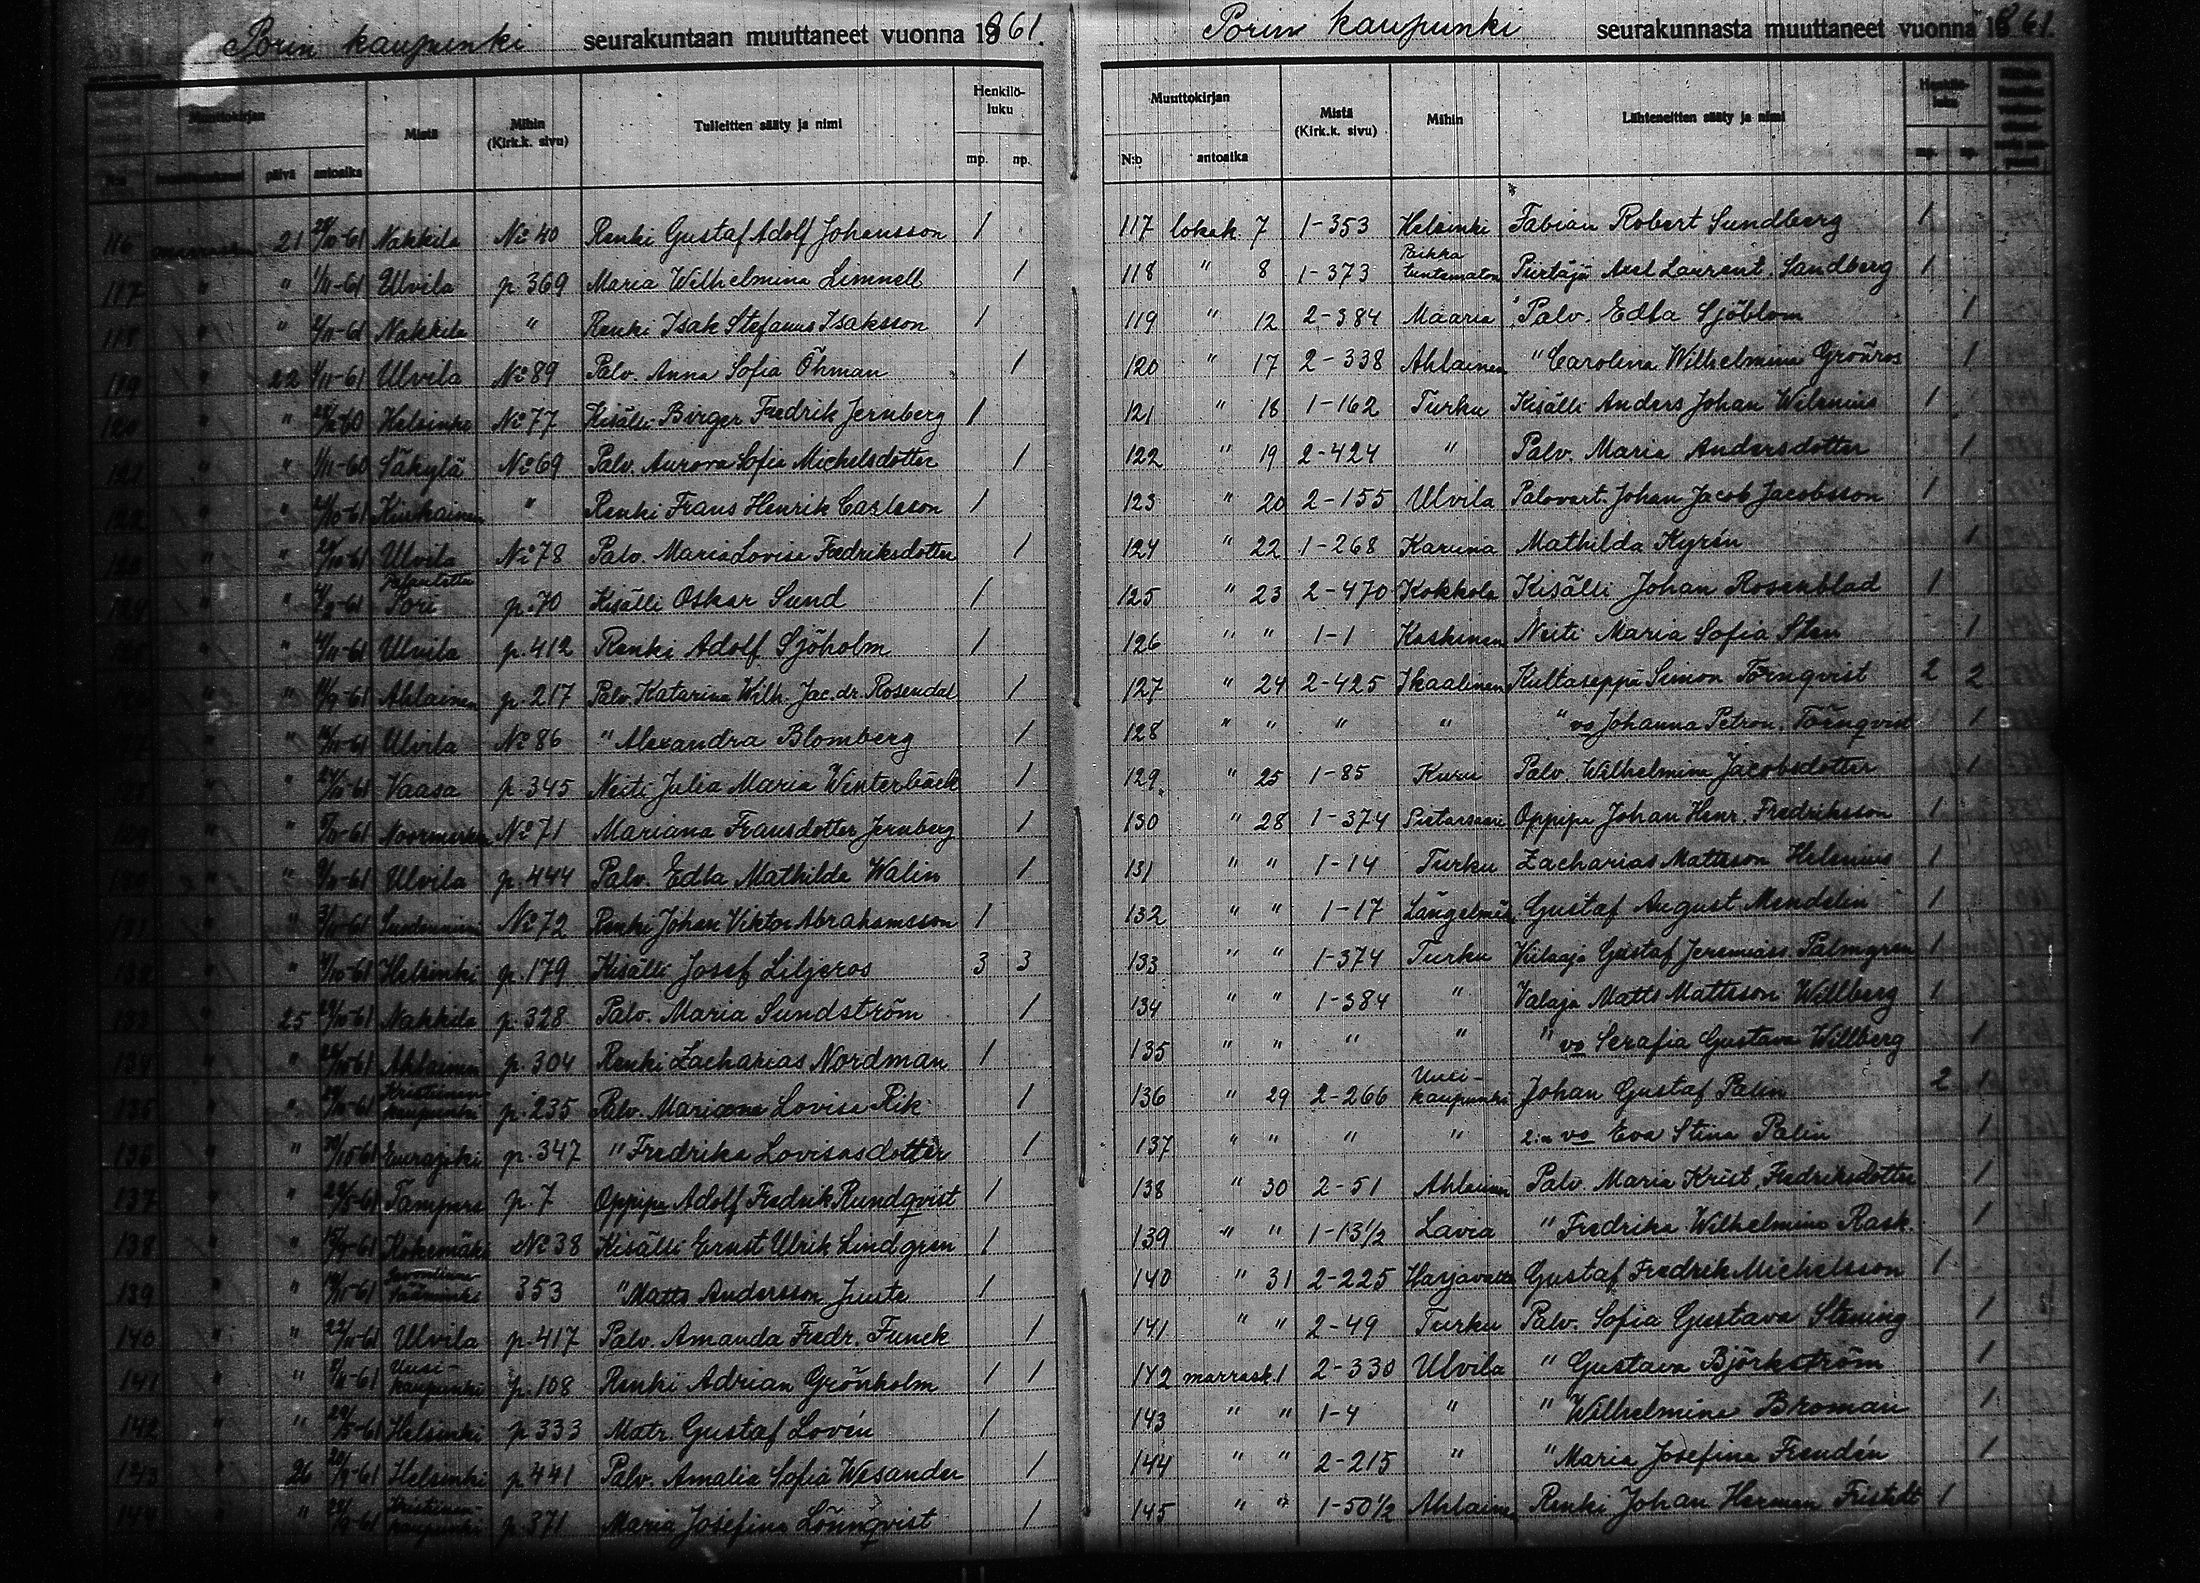 Porin kaupunki seurakuntaan muuttaneet vuonna 1861.
Muuttokirjan Mistä Mihin (Kirk.k. sivu) Tulleitten sääty ja nimi Henkilöluku
päivä antoaika mp. np.
116 21 Nakkila No 40 Renki Gustaf Adolf Johansson 1
117 " " 1/11-61 Ulvila p. 369 Maria Wilhelmina Limnell 1
118 " " Nakkila " Renki Isak Stefanus Isaksson 1
119 " 22 Ulvila No 89 Palv. Anna Sofia Öhman 1
120 " " Helsinki No 77 Kisälli Birger Fredrik Jernberg 1
121 " " Säkylä No 69 Palv. Aurora Sofia Michelsdotter 1
" " Kiukainen " Renki Frans Henrik Carlsson 1
" " Ulvila No 78 Palv. Maria Lovisa Fredriksdotter 1
" " Pori p. 70 Kisälli Oskar Sund 1
" " Ulvila p. 412 Renki Adolf Sjöholm 1
" " Ahlainen p. 217 Palv. Katarina Wilh. Jac.dr. Rosendal 1
" " Ulvila No 86 " Alexandra Blomberg 1
" " Vaasa p. 345 Neiti Julia Maria Winterbäck 1
" " Noormarkku No 71 Mariana Fransdotter Jernberg 1
" " Ulvila p. 444 Palv. Edla Mathilda Walin 1
" " No 72 Renki Johan Viktor Abrahamsson 1
" " Helsinki p. 179 Kisälli Josef Liljeros 3 3
133 " 25 Nakkila p. 328 Palv. Maria Sundström 1
134 " " Ahlainen p. 304 Renki Zacharias Nordman 1
135 " " Kristiinankaupunki p. 235 Palv. Mariana Lovisa Rik 1
136 " " Eurajoki p. 347 " Fredrika Lovisasdotter 1
137 " " Tampere p. 7 Oppipo. Adolf Fredrik Rundqvist 1
138 " " Kokemäki No 38 Kisälli Ernst Ulrik Lindgren 1
139 " " 353 " Matts Andersson Juuta 1
140 " " 22/11-61 Ulvila p. 417 Palv. Amanda Fredr. Funck 1
141 " " Uusikaupunki p. 108 Renki Adrian Grönholm 1 1
142 " " Helsinki p. 333 Matr. Gustaf Lovén 1
143 " 26 Helsinki p. 441 Palv. Amalia Sofia Wesander 1
144 " " Kristiinankaupunki p. 371 Maria Josefina Lönnqvist 1
Porin kaupunki seurakunnasta muuttaneet vuonna 1861.
Muuttokirjan Mistä (Kirk.k. sivu) Mihin Lähteneitten sääty ja nimi Henkilöluku
N:o antoaika mp. np.
117 lokak. 7 1-353 Helsinki Fabian Robert Sundberg 1
118 " 8 1-373 Paikka tuntematon Piirtäjä Axel Laurent. Sandberg 1
119 " 12 2-384 Maaria Palv. Edla Sjöblom 1
120 " 17 2-338 Ahlainen " Carolina Wilhelmina Grönros 1
121 " 18 1-162 Turku Kisälli Anders Johan Wilenius 1
122 " 19 2-424 " Palv. Maria Andersdotter 1
123 " 20 2-155 Ulvila Palovart. Johan Jacob Jacobsson 1
124 " 22 1-268 Karuna Mathilda Kyrén 1
125 " 23 2-470 Kokkola Kisälli Johan Rosenblad 1
126 " " 1-1 Kaskinen Neiti Maria Sofia Sten 1
127 " 24 2-425 Ikaalinen Kultaseppä Simon Törnqvist 2 2
128 " " " " " vo Johanna Petron. Törnqvist 1
129 " 25 1-85 Kuru Palv. Wilhelmina Jacobsdotter 1
130 " 28 1-374 Pietarsaari Oppipo. Johan Henr. Fredriksson 1
131 " " 1-14 Turku Zacharias Mattsson Helenius 1
132 " " 1-17 Längelmäki Gustaf August Mendelin 1
133 " " 1-374 Turku Viilaaja Gustaf Jeremias Palmgren 1
134 " " 1-384 " Valaja Matts Mattsson Willberg 1
135 " " " " " vo Serafia Gustava Willberg 1
136 " 29 2-266 Uusikaupunki Johan Gustaf Palin 2 1
137 " " " " 2:n vo Eva Stina Palin 1
138 " 30 2-51 Ahlainen Palv. Maria Krist. Fredriksdotter 1
139 " " 1-13 1/2 Lavia " Fredrika Wilhelmina Rask. 1
140 " 31 2-225 Harjavalta Gustaf Fredrik Michelsson 1
141 " " 2-49 Turku Palv. Sofia Gustava Stening 1
142 marrask. 1 2-330 Ulvila " Gustava Björkström 1
143 " " 1-4 " " Wilhelmina Broman 1
144 " " 2-215 " " Maria Josefina Frendén 1
145 " " 1-50 1/2 Ahlainen Renki Johan Herman Fristedt 1